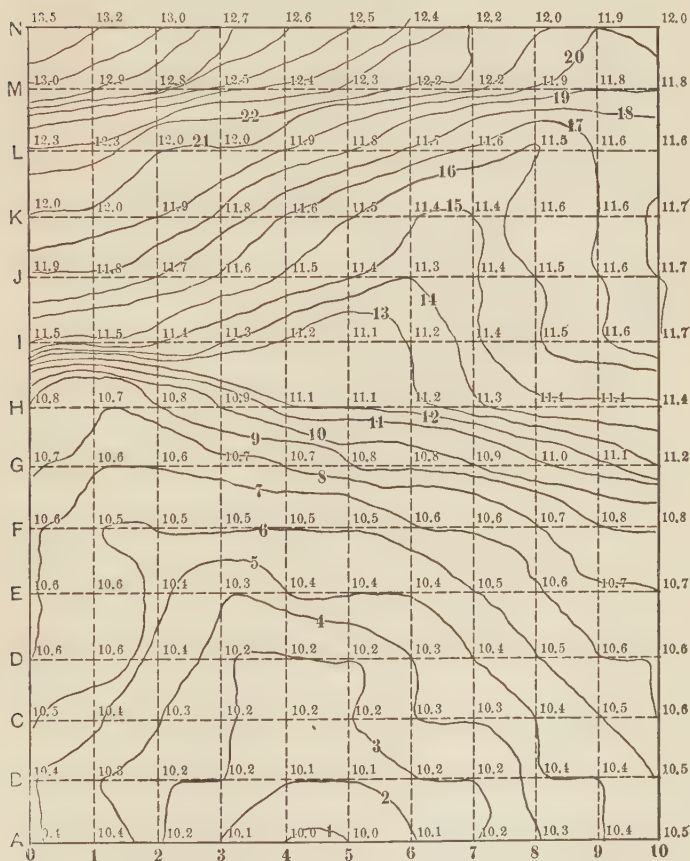 13.5 13.2 13.0 12.7 12.5 12.5 12.4 12.2 12.0 11.9 12.0
N
20
M 13.0 12.9 12.8 12.5 12.4 12.3 12.2 12.2 11.9 11.8 11.8
19
22 18
17
L 12.3 12.3 12.0 21 12.0 11.9 11.8 11.7 11.6 11.5 11.6 11.6
16
K 12.0 12.0 11.9 11.8 11.6 11.5 11.4 15 11.4 11.6 11.6 11.7
J 11.9 11.8 11.7 11.6 11.5 11.4 11.3 11.4 11.5 11.6 11.7
14
13
I 11.5 11.5 11.4 11.3 11.2 11.1 11.2 11.4 11.5 11.6 11.7
H 10.8 10.7 10.8 10.9 11.1 11.1 11.2 11.3 11.4 11.4 11.4
12
11
10
9
G 10.7 10.6 10.6 10.7 10.7 10.8 10.8 10.9 11.0 11.1 11.2
8
7
F 10.6 10.5 10.5 10.5 10.5 10.5 10.6 10.6 10.7 10.8 10.8
6
5
E 10.6 10.6 10.4 10.3 10.4 10.4 10.4 10.5 10.6 10.7 10.7
4
D 10.6 10.6 10.4 10.2 10.2 10.2 10.3 10.4 10.5 10.6 10.6
C 10.5 10.4 10.3 10.2 10.2 10.2 10.3 10.3 10.4 10.5 10.6
3
B 10.4 10.3 10.2 10.2 10.1 10.1 10.2 10.2 10.4 10.4 10.5
2
A 10.4 10.4 10.2 10.1 10.0 10.0 10.1 10.2 10.3 10.4 10.5
0 1 2 3 4 5 6 7 8 9 10